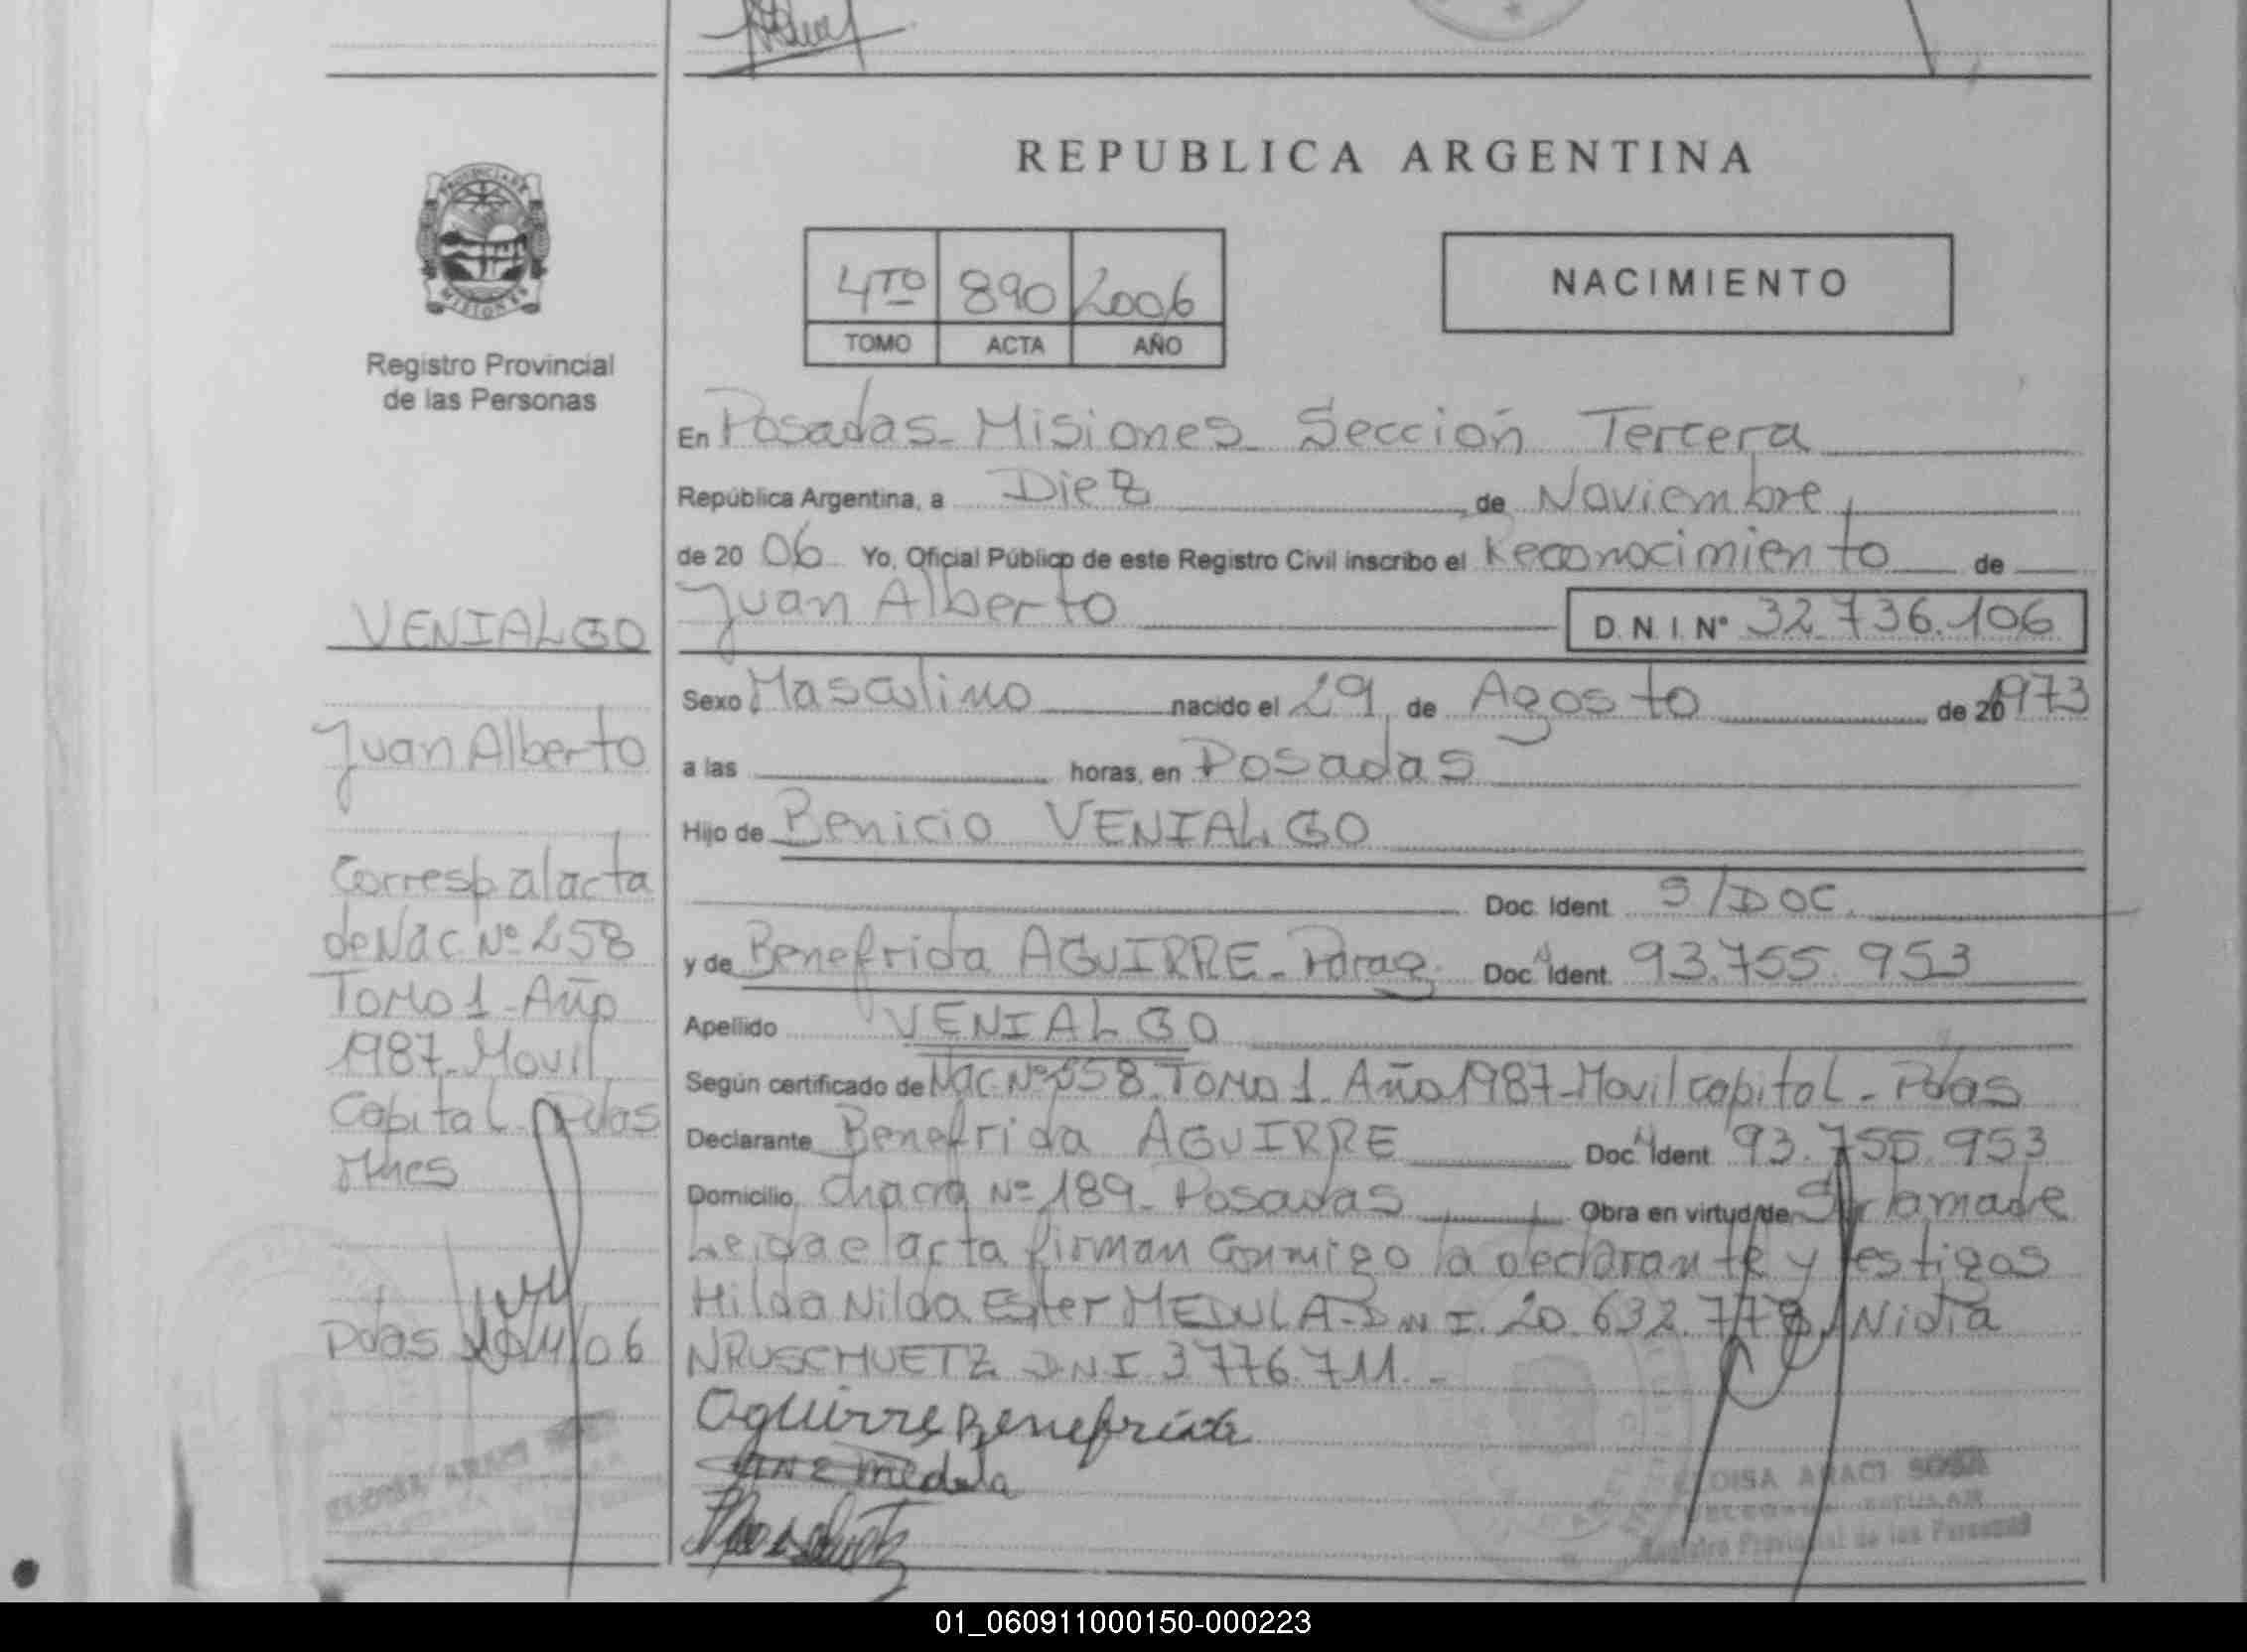 REPUBLICA ARGENTINA
PROVINCIA DE
MISIONES
Registro Provincial
de las Personas
4TO 890 2006
TOMO ACTA AÑO
NACIMIENTO
VENIALGO
Juan Alberto
Corresp al acta
de Nac Nº 258
Tomo 1 - Año
1987 - Movil
Capital - Pdas
Mnes
Pdas
06
ELOISA ARACI SOSA
En Posadas - Misiones - Sección Tercera
República Argentina, a Diez de Noviembre
de 20 06 Yo, Oficial Público de este Registro Civil inscribo el Reconocimiento de
Juan Alberto D.N.I. Nº 32.736.106
Sexo Masculino nacido el 29 de Agosto de 20 1973
a las horas, en Posadas
Hijo de Benicio VENIALGO
Doc. Ident. S/DOC.
y de Benefrida AGUIRRE - Parag. Doc. Ident. 93.755.953
Apellido VENIALGO
Según certificado de Nac. Nº 558. Tomo 1. Año 1987 - Movil capital - Pdas
Declarante Benefrida AGUIRRE Doc. Ident. 93.755.953
Domicilio chacra Nº 189 - Posadas Obra en virtud de Ser la madre
Leida el acta firman conmigo la declarante y testigos
Hilda Nilda Ester MEDULA - DNI. 20.632.778 Nidia
NRUSCHUETZ D.N.I 3.776.711. -
Aguirre Benefrida
Medula
ELOISA ARACI SOSA
DELEGADA TITULAR
Registro Provincial de las Personas
01_060911000150-000223